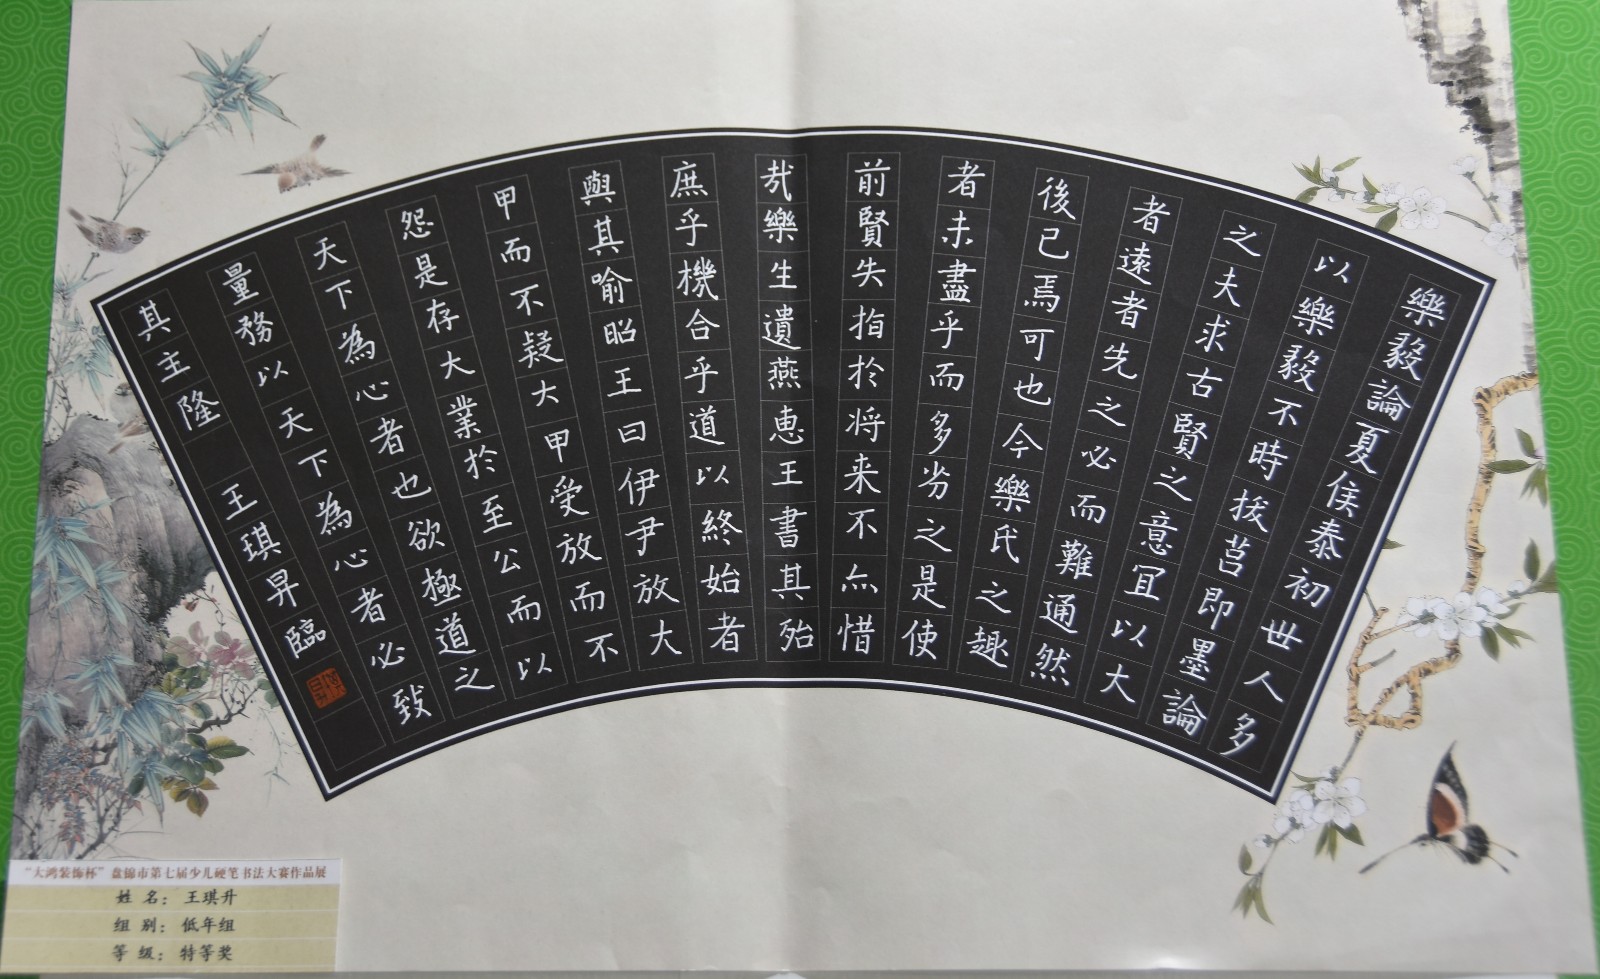 樂毅論夏侯泰初世人多
以樂毅不時拔莒即墨論
之夫求古賢之意宜以大
者遠者先之必而難通然
後已焉可也今樂氏之趣
者未盡乎而多劣之是使
前賢失指於将来不亦惜
哉樂生遺燕惠王書其殆
庶乎機合乎道以終始者
與其喻昭王曰伊尹放大
甲而不疑大甲受放而不
怨是存大業於至公而以
天下為心者也欲極道之
量務以天下為心者必致
其主隆 王琪昇臨
“大鸿装饰杯”盘锦市第七届少儿硬笔书法大赛作品展
姓 名： 王琪升
组 别： 低年组
等 级： 特等奖